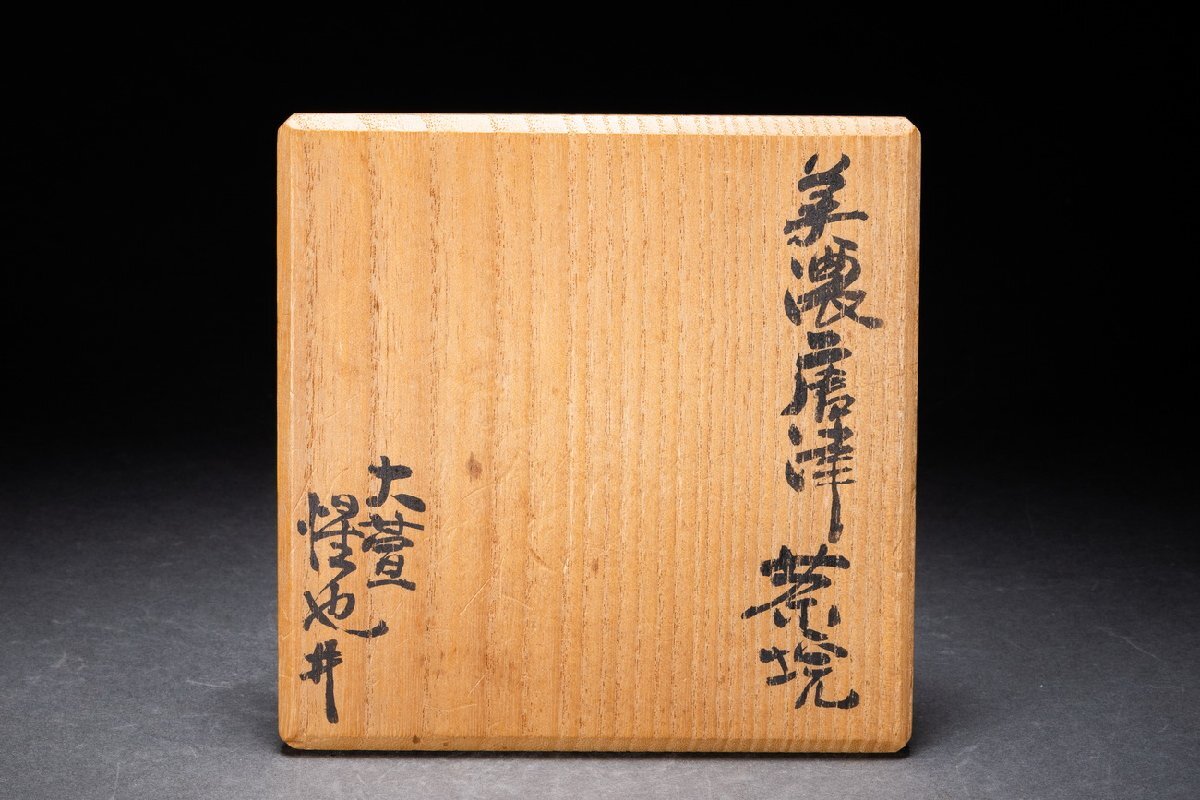 美濃唐津
茶埦
大萱
惺也
井